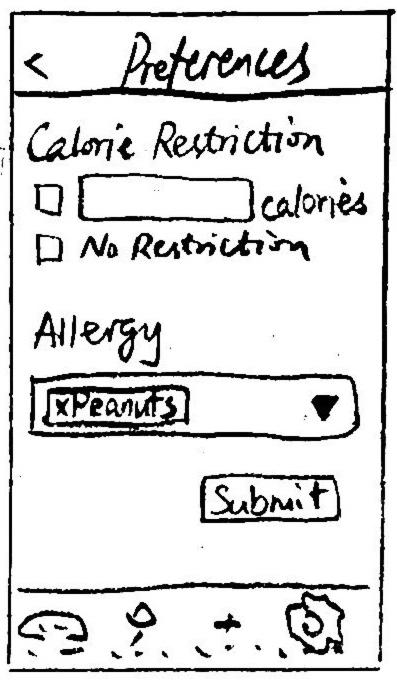 < Preferences
Calorie Restriction
calories
No Restriction
Allergy
xPeanuts
Submit
+